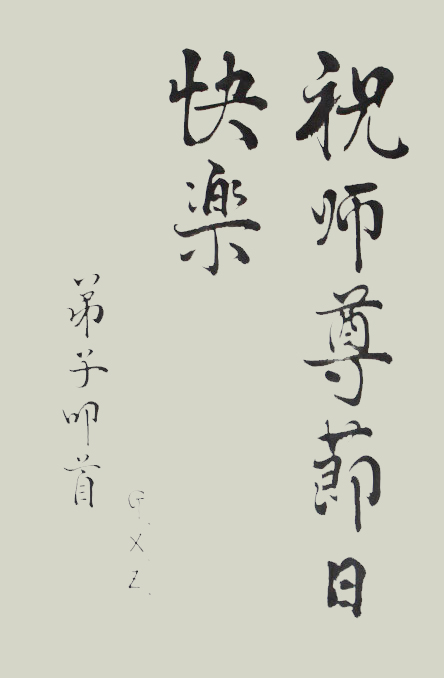 祝师尊節日
快楽
弟子叩首